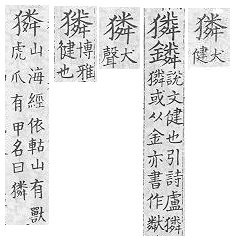 獜
犬
健
獜鏻
說文健也引詩盧獜
獜或从金亦書作
獜
犬
聲
獜
博雅
健也
獜
山海經依軲山有獸
虎爪有甲名曰獜